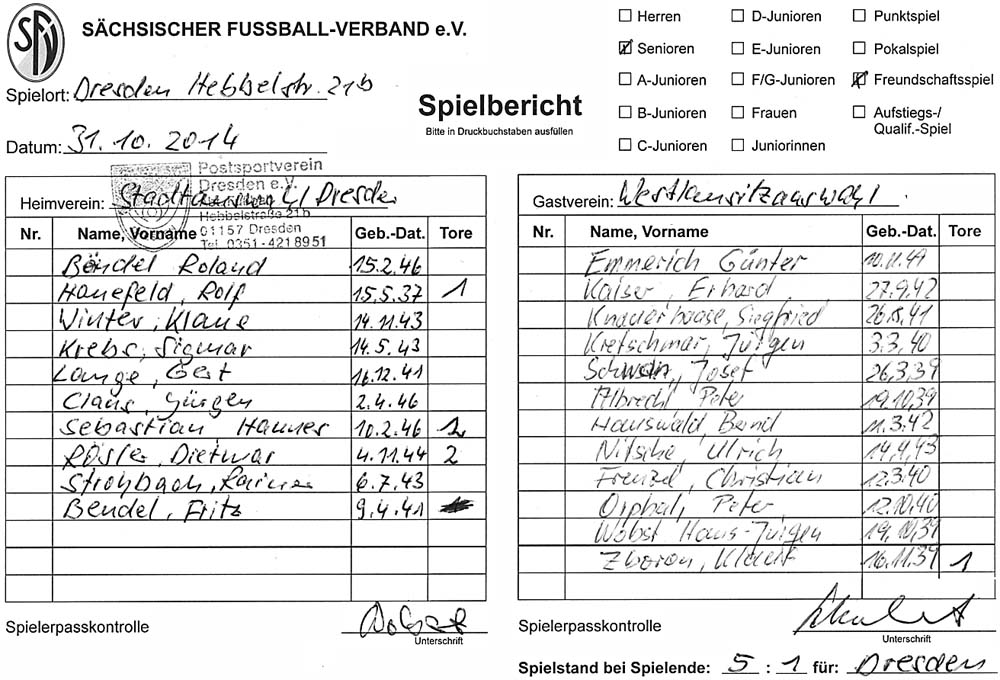 SFV
SÄCHSISCHER FUSSBALL-VERBAND e.V.
Spielort: Dresden Hebbelstr. 21b
Datum: 31.10.2014
Spielbericht
Bitte in Druckbuchstaben ausfüllen
Herren D-Junioren Punktspiel
Senioren E-Junioren Pokalspiel
A-Junioren F/G-Junioren Freundschaftsspiel
B-Junioren Frauen Aufstiegs-/
Qualif.-Spiel
C-Junioren Juniorinnen
Postsportverein
Dresden e.V.
Hebbelstraße 21b
01157 Dresden
Tel. 0351-4218951
Heimverein: Stadtauswahl Dresden
Nr. Name, Vorname Geb.-Dat. Tore
Bendel Roland 15.2.46
Hanefeld, Rolf 15.5.37 1
Winter, Klaus 14.11.43
Krebs, Sigmar 14.5.43
Lange, Gert 16.12.41
Claus, Jürgen 2.4.46
Sebastian Hannes 10.2.46
Rösler, Dietmar 4.11.44 2
Strohbach, Rainer 6.7.43
Bendel, Fritz 9.4.41
Spielerpasskontrolle
Unterschrift
Gastverein: Westlausitzauswahl
Nr. Name, Vorname Geb.-Dat. Tore
Emmerich Günter 10.11.41
Kaiser, Erhard 27.9.42
Knauerhaase, Siegfried 26.8.41
Kretschmar, Jürgen 3.3.40
Josef 26.3.39
Albrecht Peter 19.10.39
Hauswald, Bernd 11.3.42
Nitsche, Ulrich 14.4.43
Frenzel, Christian 12.3.40
Orphal, Peter 12.10.40
Wobst Hans-Jürgen 19.10.39
Zboron, 16.11.39 1
Spielerpasskontrolle
Unterschrift
Spielstand bei Spielende: 5 : 1 für: Dresden